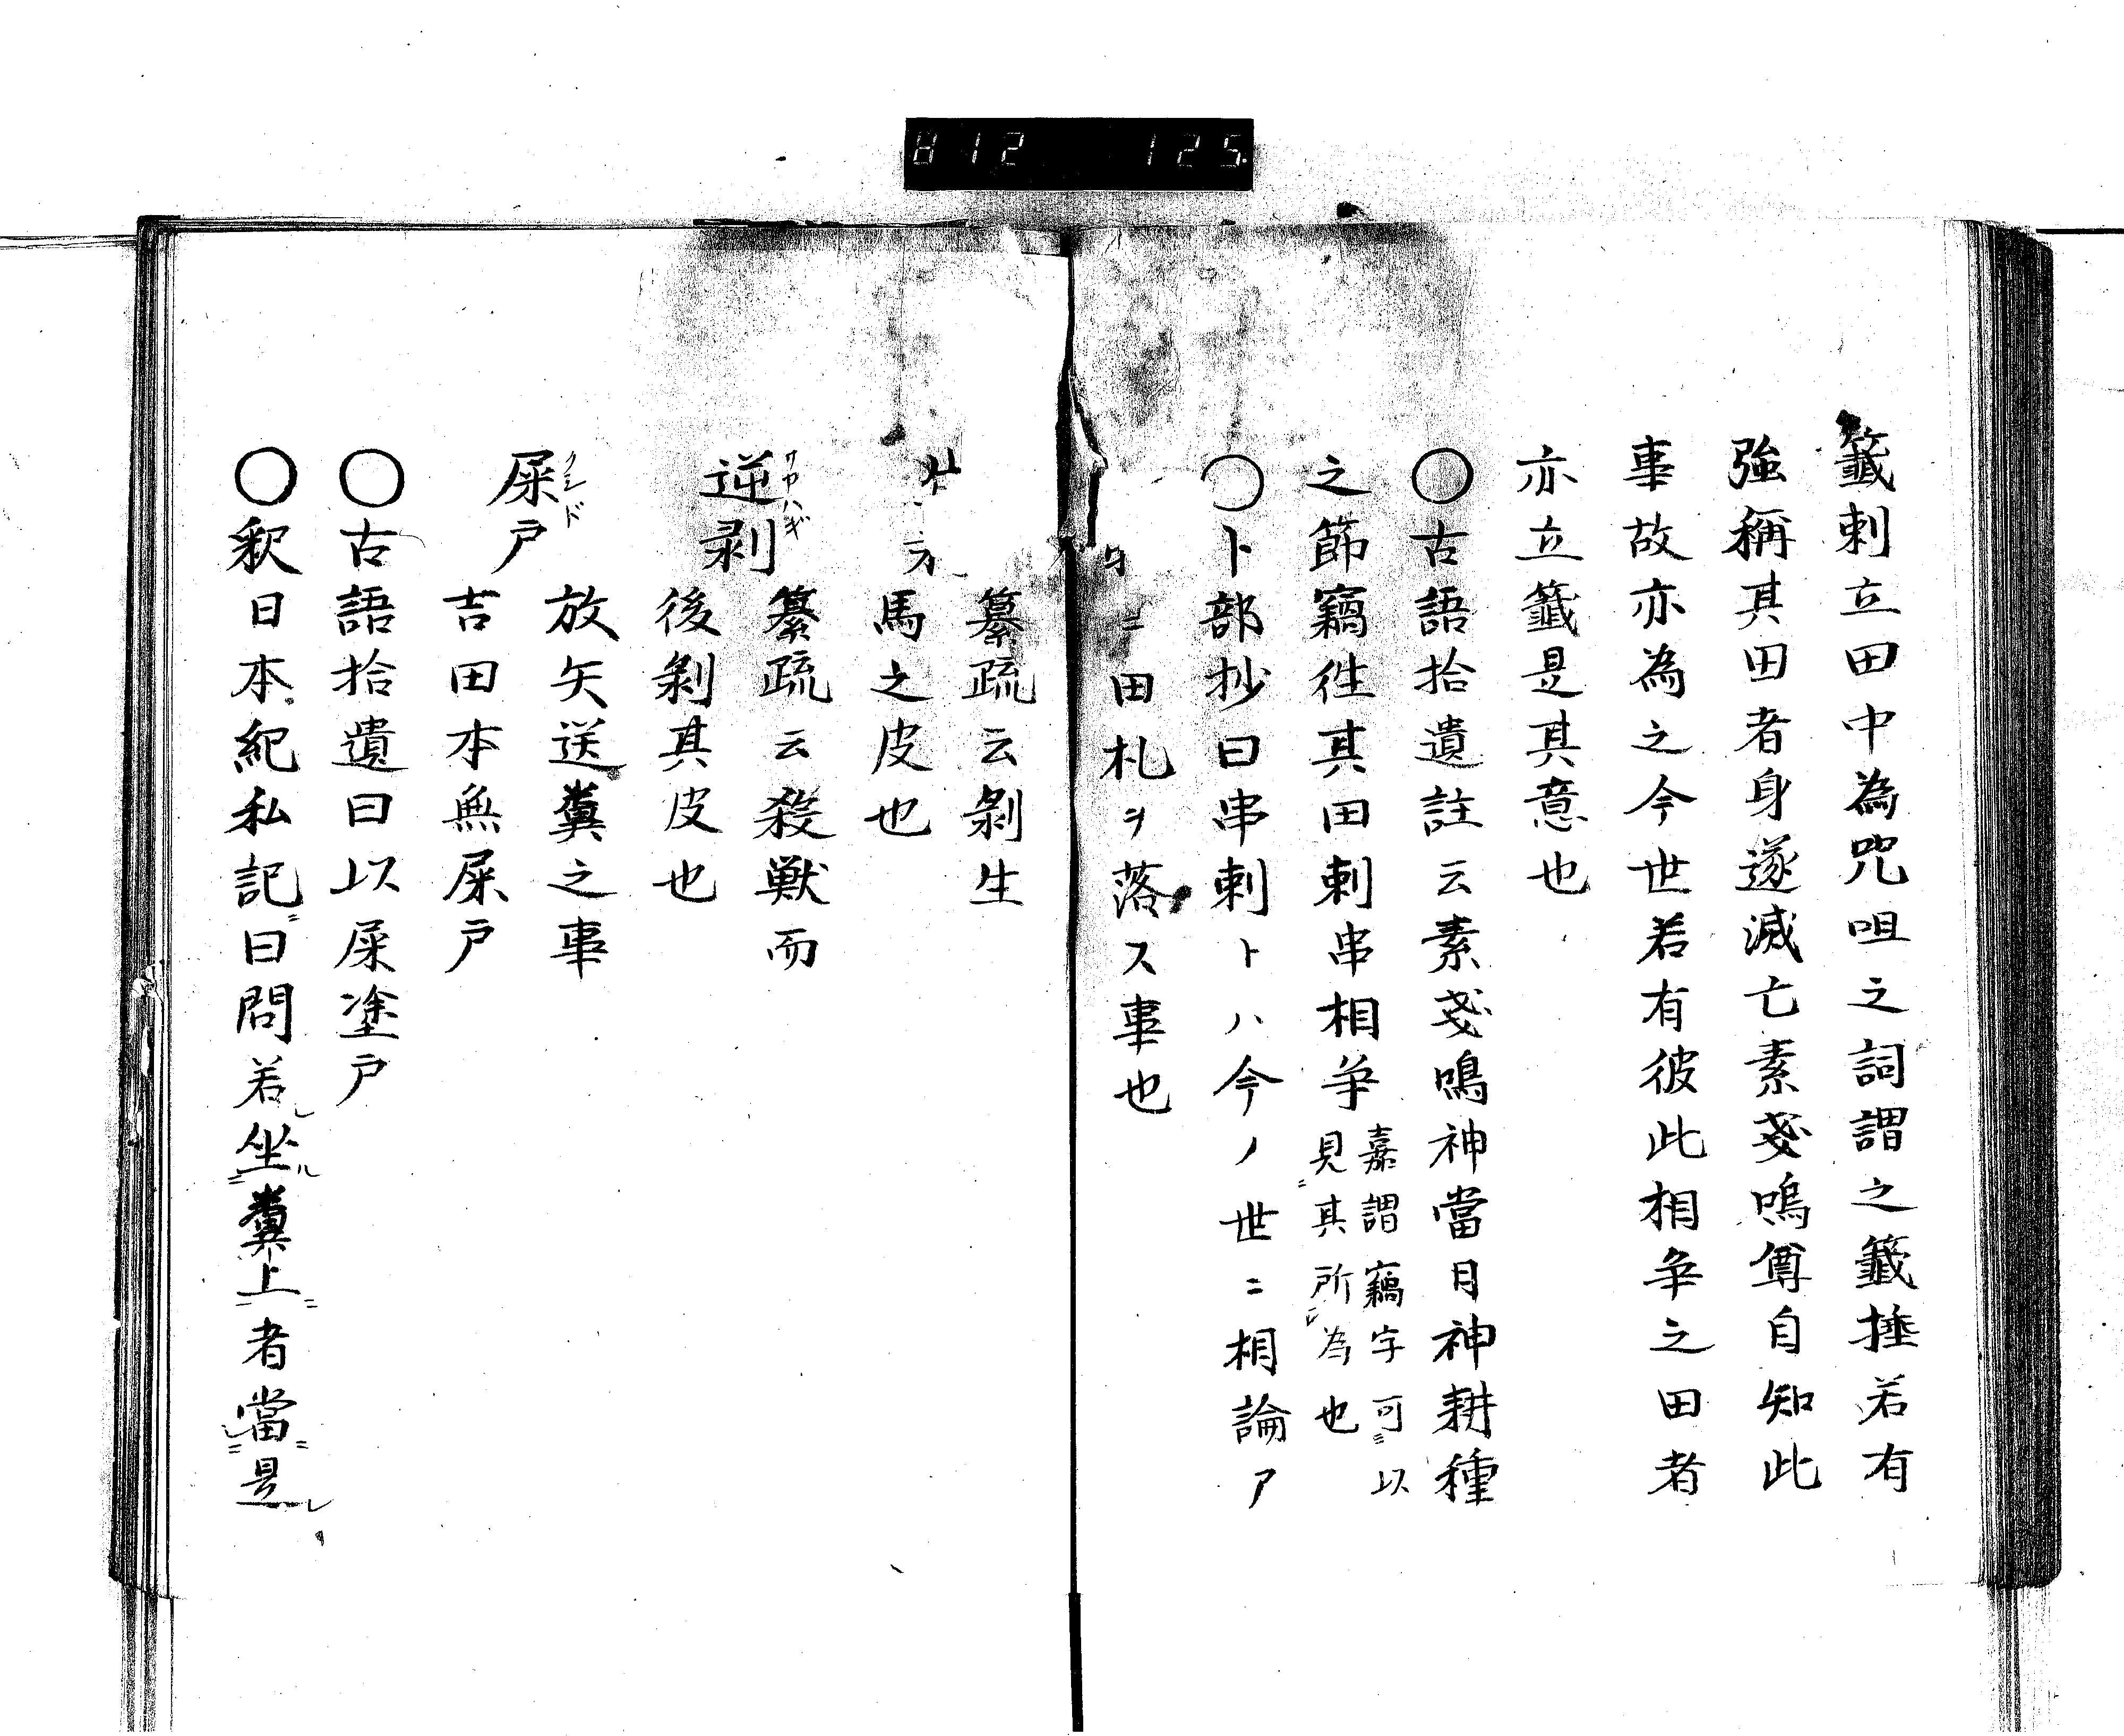 812 125
籤刺立田中為咒咀之詞謂之籤捶若有
強稱其田者身遂滅亡素戔嗚尊自知此
事故亦為之今世若有彼此相争之田者
亦立籤是其意也
○古語拾遺註云素戔鳴神當日神耕種
之節竊徃其田刺串相争 嘉謂竊字可以
見其所為也
○卜部抄曰串刺トハ今ノ世ニ相論ア
ニ田札ヲ落ス事也
纂疏云剝生
馬之皮也
逆剥 サカハギ 纂疏云殺獣而
後剝其皮也
屎戸 クソド 放矢送糞之事
吉田本無屎戸
○古語拾遺曰以屎塗戸
○釈日本紀私記曰問若坐糞上者當是